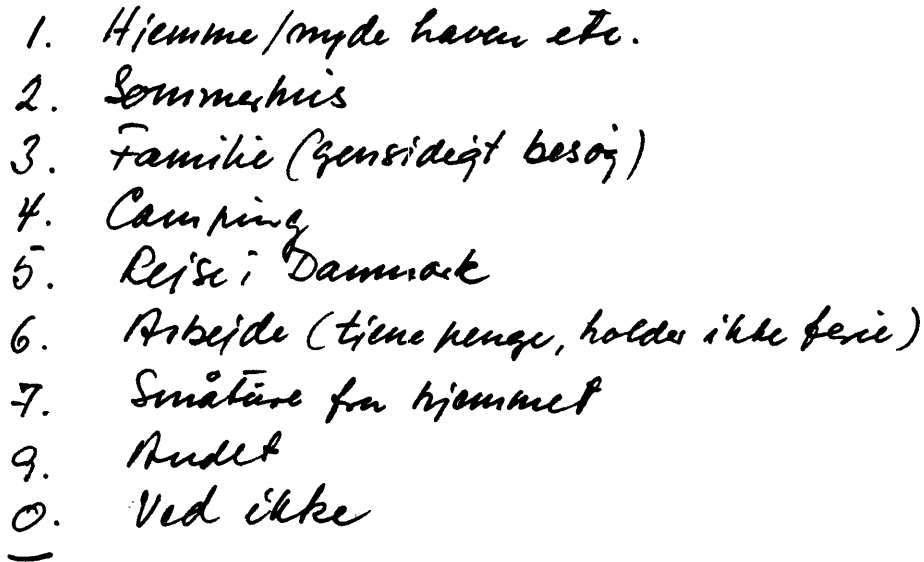 1. Hjemme/nyde haven etc.
2. Sommerhus
3. Familie (gensidigt besøg)
4. Camping
5. Rejse i Danmark
6. Arbejde (tjene penge, holder ikke ferie)
7. Småture fra hjemmet
9. Andet
0. Ved ikke